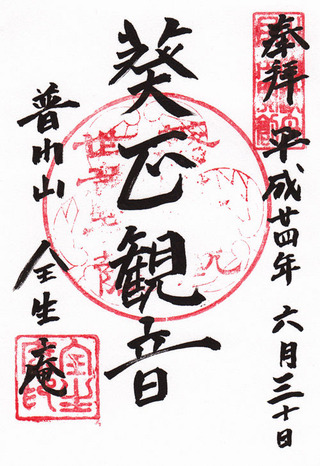 奉拝 平成廿四年 六月三十日
葵正観音
普門山 全生庵